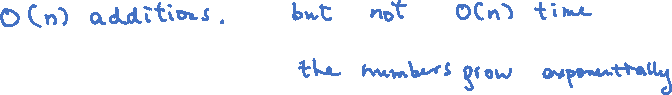 O(n) additions. but not O(n) time
the numbers grow exponentially